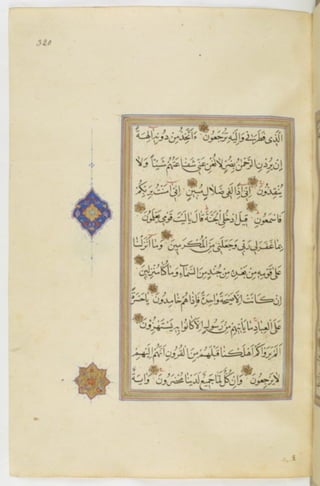 320
الذى فطرنى واليه ترجعون ءاتخذ من دونه الهة
ان يردن الرحمن بضر لا تغن عنى شفاعتهم شيئا ولا
ينقذون انى اذا لفى ضلال مبين انى امنت بربكم
فاسمعون قيل ادخل الجنة قال يا ليت قومى يعلمون
بما غفر لى ربى وجعلنى من المكرمين وما انزلنا
على قومه من بعده من جند من السماء وما كنا منزلين
ان كانت الا صيحة واحدة فاذا هم خامدون يا حسرة
على العباد ما ياتيهم من رسول الا كانوا به يستهزؤن
الم يروا كم اهلكنا قبلهم من القرون انهم اليهم
لا يرجعون وان كل لما جميع لدينا محضرون واية